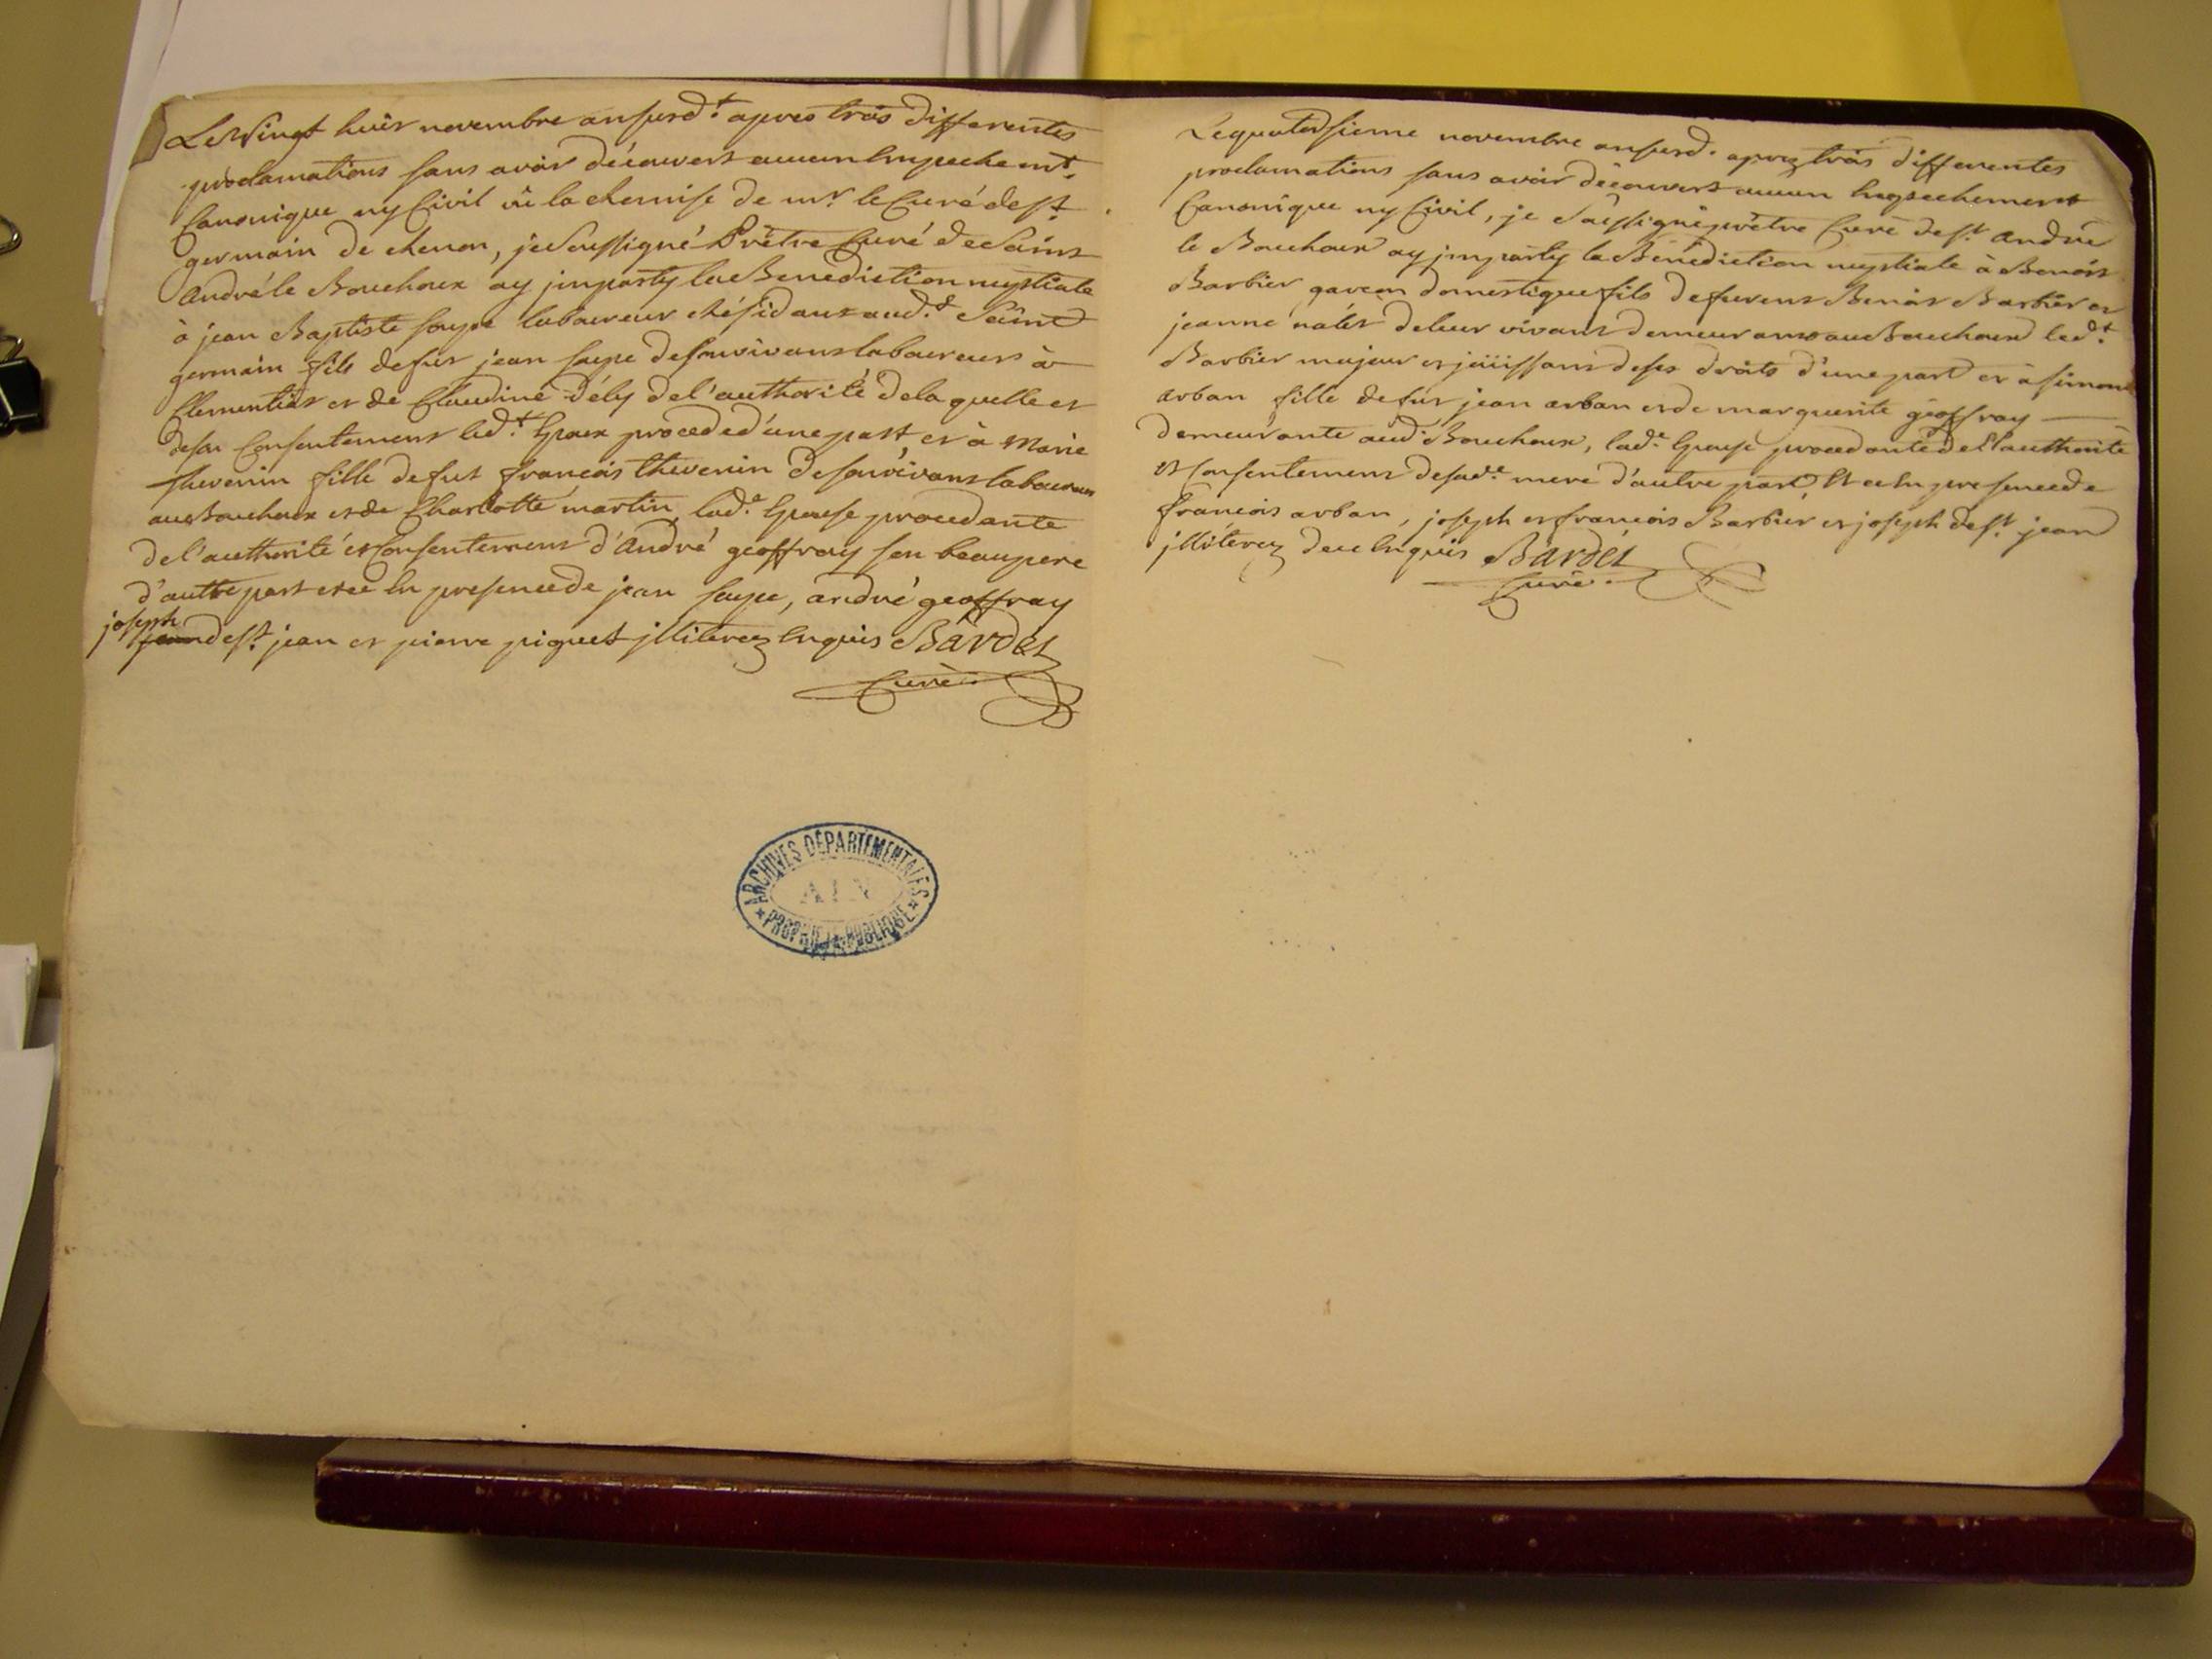 Le Vingt huit novembre an susd.t apres trois differentes
proclamations sans avoir découvert aucun Empechemt.
Canonique ny Civil vû la chemise de mr. le Curé de st.
germain de chenon, je soussigné Prêtre Curé de Saint
André le Bouchoux ay jmparty la Benediction nuptiale
à jean Baptiste soupe laboureur résidant aud.t Saint
germain fils de fut jean soupe de son vivant laboureur à
Clementiat et de Claudine Dély de l'authorité de la quelle et
de son Consentement led.t Epoux procede d'une part et à Marie
thevenin fille de fut francois thevenin de son vivant laboureur
au Bouchoux et de Charlotte martin, lad.e Epouse procedante
de l'authorité et Consentement d'André geoffray son beaupere
d'autre part et ce En presence de jean soupe, andré geoffray
joseph de st. jean et pierre piquet jlliterez Enquis Bardet
Curé
Le quatorsieme novembre an susd. aprez trois differentes
proclamations sans avoir découvert aucun Empechement
Canonique ny Civil, je Soussigné prêtre Curé de st. André
le Bouchoux ay jmparty la Bénédiction nuptiale à Benoit
Barbier garcon domestique fils de furent Benoit Barbier et
jeanne nalet de leur vivant demeurants au Bouchoux led.t
Barbier majeur et joüissant de ses droits d'une part et à simone
arban fille de fut jean arban et de marguerite geoffray
demeurante aud. Bouchoux, lad.e Epouse procedante de l'authorité
et Consentement de sad.e mere d'autre part, Et ce En presence de
francois arban, joseph et francois Barbier et joseph de st. jean
jlliterez de ce Enquis Bardet
Curé.
ARCHIVES DÉPARTEMENTALES
AIN
PROPRIÉTÉ PUBLIQUE